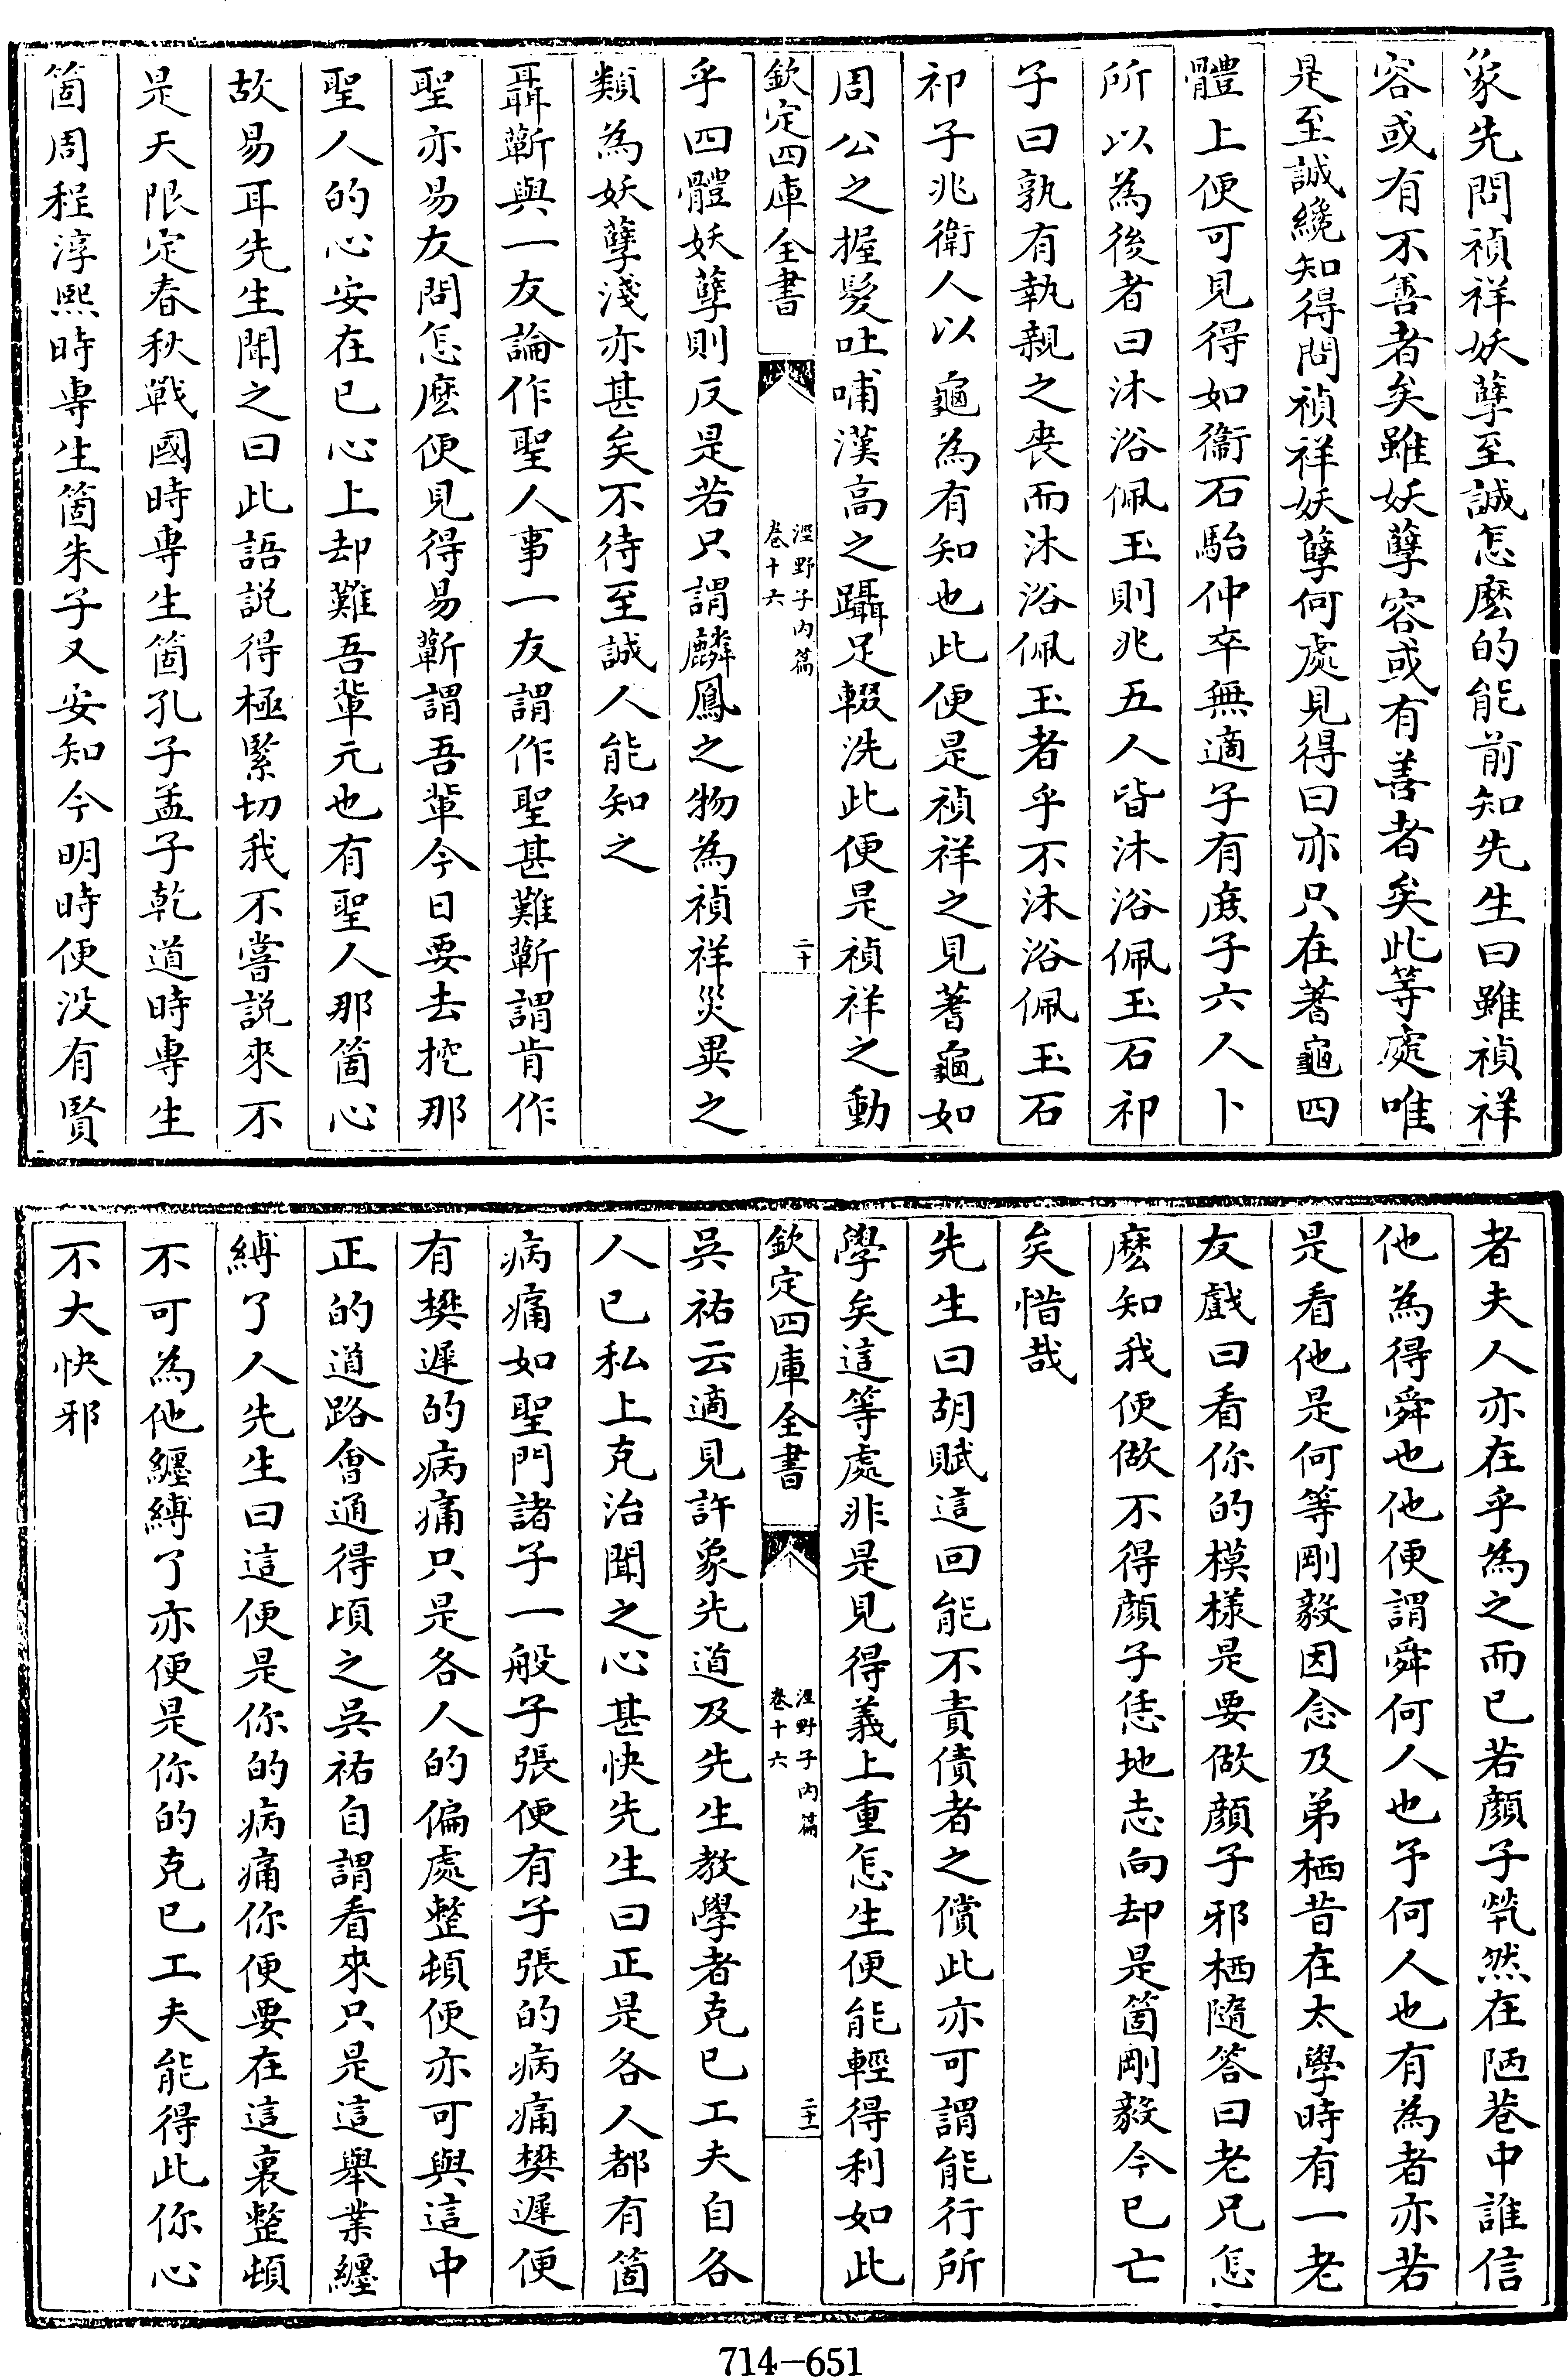 象先問禎祥妖孽至誠怎麽的能前知先生曰雖禎祥
容或有不善者矣雖妖孽容或有善者矣此等處唯
是至誠纔知得問禎祥妖孽何處見得曰亦只在蓍龜四
體上便可見得如衞石駘仲卒無適子有庶子六人卜
所以為後者曰沐浴佩玉則兆五人皆沐浴佩玉石祁
子曰孰有執親之喪而沐浴佩玉者乎不沐浴佩玉石
祁子兆衛人以龜為有知也此便是禎祥之見蓍龜如
周公之握髮吐哺漢高之躡足輟洗此便是禎祥之動
欽定四庫全書
涇野子內篇
卷十六
二十
乎四體妖孽則反是若只謂麟鳳之物為禎祥災異之
類為妖孽淺亦甚矣不待至誠人能知之
聶蘄與一友論作聖人事一友謂作聖甚難蘄謂肯作
聖亦易友問怎麽便見得易蘄謂吾輩今日要去挖那
聖人的心安在已心上却難吾輩元也有聖人那箇心
故易耳先生聞之曰此語説得極緊切我不嘗説來不
是天限定春秋戰國時專生箇孔子孟子乾道時專生
箇周程淳熙時專生箇朱子又安知今明時便沒有賢
者夫人亦在乎為之而已若顔子煢然在陋巷中誰信
他為得舜也他便謂舜何人也予何人也有為者亦若
是看他是何等剛毅因念及弟栖昔在太學時有一老
友戲曰看你的模樣是要做顔子邪栖隨答曰老兄怎
麽知我便做不得顔子恁地志向却是箇剛毅今已亡
矣惜哉
先生曰胡賦這回能不責債者之償此亦可謂能行所
學矣這等處非是見得義上重怎生便能輕得利如此
欽定四庫全書
涇野子內篇
卷十六
二十一
吳祐云適見許象先道及先生教學者克已工夫自各
人已私上克治聞之心甚快先生曰正是各人都有箇
病痛如聖門諸子一般子張便有子張的病痛樊遲便
有樊遲的病痛只是各人的偏處整頓便亦可與這中
正的道路會通得頃之吳祐自謂看來只是這舉業纒
縛了人先生曰這便是你的病痛你便要在這裏整頓
不可為他纒縛了亦便是你的克已工夫能得此你心
不大快邪
714-651